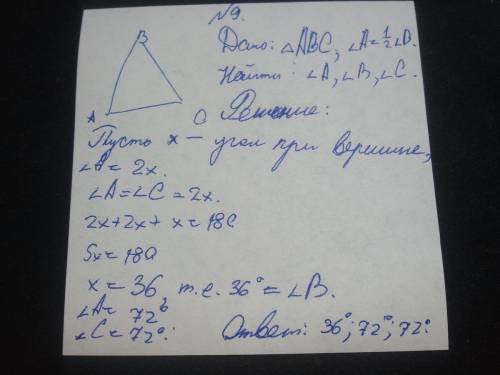 №9.
B
A
C
Дано: △ABC, ∠A=½∠B.
Найти: ∠A, ∠B, ∠C.
Решение:
Пусть x — угол при вершине,
∠A = 2x.
∠A=∠C = 2x.
2x+2x+ x = 180
5x = 180
x = 36, т.е. 36° = ∠B.
∠A = 72°
∠C = 72°.
Ответ: 36°; 72°; 72°.